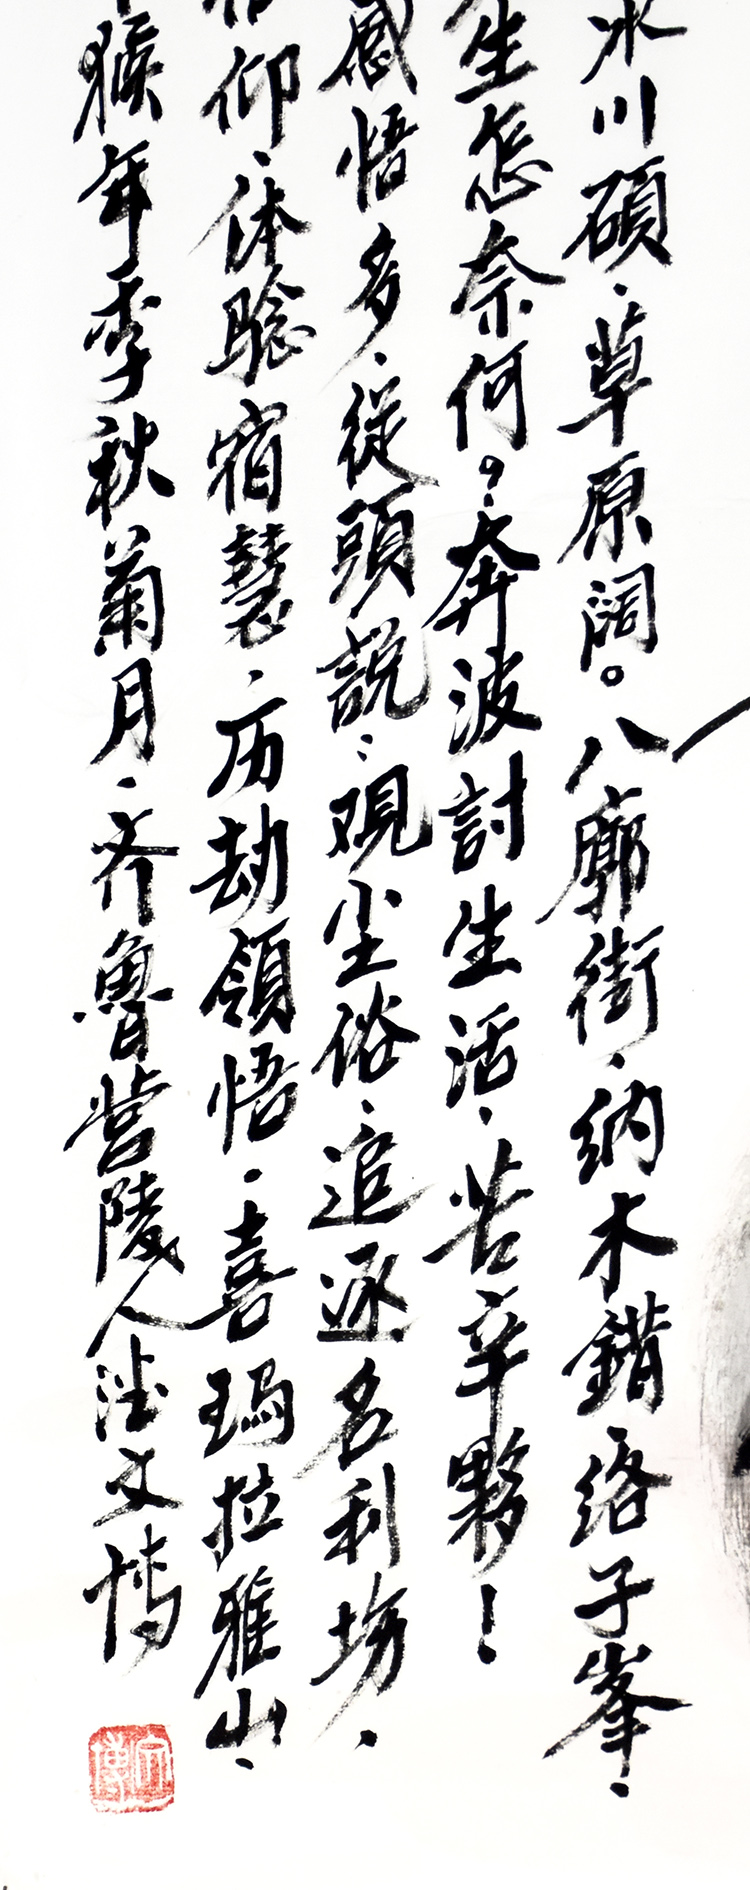 冰川碩、草原阔。八廓街、纳木錯、络子峯、
生怎奈何？奔波討生活、苦辛夥！
感悟多、從頭説：观尘俗、追逐名利场、
仰、体騐宿慧、历劫領悟、喜玛拉雅山、
猴年季秋菊月、齐魯营陵人法文博